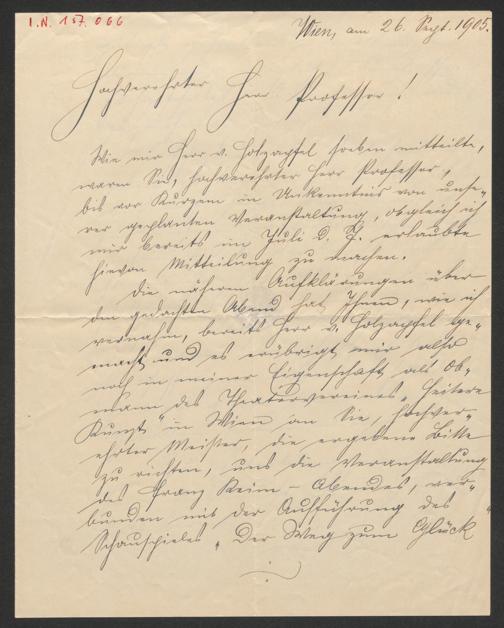 I.N. 157.066
Wien, am 26. Sept. 1905.
Hochverehrter Herr Professor!
Wie mir Herr v. Holzapfel soeben mitteilte,
waren Sie, hochverehrter Herr Professor,
bis vor Kurzem in Unkenntnis von unse-
rer geplanten Veranstaltung, obgleich ich
mir bereits im Juli d. J. erlaubte
hievon Mitteilung zu machen.
Die näheren Aufklärungen über
den gedachten Abend hat Ihnen, wie ich
vernahm, bereits Herr v. Holzapfel ge-
macht und es erübrigt mir also
noch in meiner Eigenschaft als Ob-
mann des Theatervereines „Heitere
Kunst" in Wien an Sie, hochver-
ehrter Meister, die ergebene Bitte
zu richten, uns die Veranstaltung
des Franz Keim-Abendes, ver-
bunden mit der Aufführung des
Schauspieles „Der Weg zum Glück"